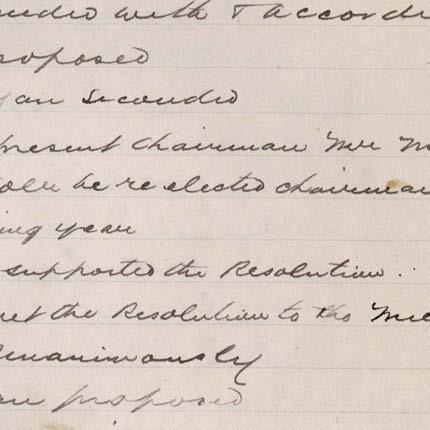 with & accordi
roposed
an seconded
present chairman Mr M
be re elected chairman
ing year
supported the Resolution.
the Resolution to the Mee
unanimously
proposed